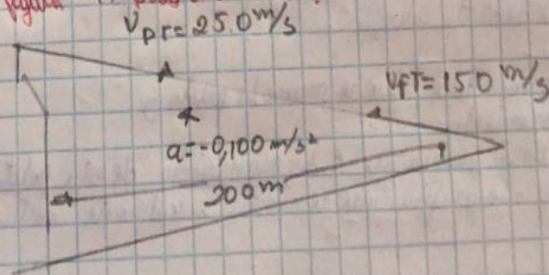 v_PT = 25.0 m/s
v_FT = 15.0 m/s
a = -0,100 m/s²
200m